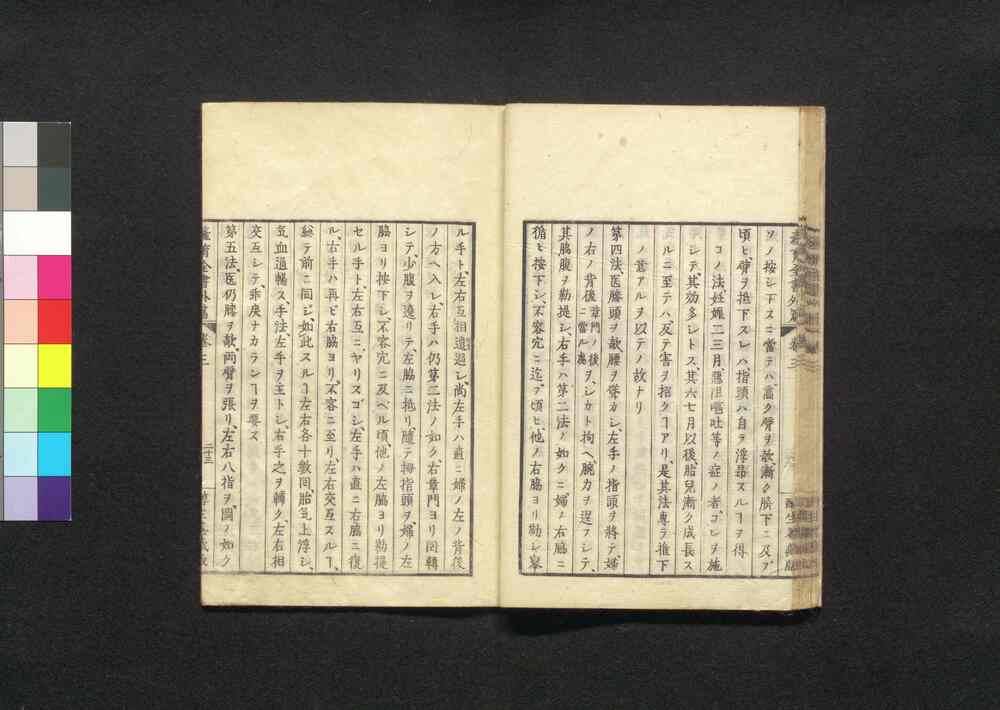 ヲノ按シ下スニ當テハ高ク臂ヲ敧漸ク臍下ニ及フ
頃ヒ臂ヲ抵下スレハ指頭ハ自ラ浮昂スルヿヲ得
コノ法妊娠二三月惡沮嘔吐等ノ症ノ者ニコレヲ施
シテ其効多シトス其六七月以後胎兒漸ク成長ス
ルニ至テハ反テ害ヲ招クヿアリ是其法專ラ推下
ノ意アルヲ以テノ故ナリ
第四法医膝頭ヲ敧腰ヲ聳カシ左手ノ指頭ヲ將テ婦
ノ右ノ背後章門ノ後ニ當ル處ヲシカト拘ヘ腕力ヲ逞フシテ
其脇腹ヲ勒提シ右手ハ第二法ノ如クニ婦ノ右脇ニ
循ヒ按下シ不容穴ニ迄フ頃ヒ他ノ右脇ヨリ勒シ擧
ル手ト左右互相遺過シ尚左手ハ直ニ婦ノ左ノ背後
ノ方ヘ入レ右手ハ仍第二法ノ如ク右章門ヨリ回轉
シテ少腹ヲ遶リテ左脇ニ抵リ隨テ拇指頭ヲ婦ノ左
脇ヨリ按下シ不容穴ニ及ヘル頃他ノ左脇ヨリ勒提
セル手ト左右互ニヤリスゴシ左手ハ直ニ右脇ニ復
ル右手ハ再ヒ右脇ヨリ不容ニ至リ左右交互スルヿ
総テ前ニ同シ如此スルヿ左右各十數回胎気上浮シ
気血通暢ス手法左手ヲ主トシ右手之ヲ輔ク左右相
交互シテ乖戻ナカランヿヲ要ス
第五法医仍膝ヲ敧両臂ヲ張リ左右八指ヲ圖ノ如ク
二十三